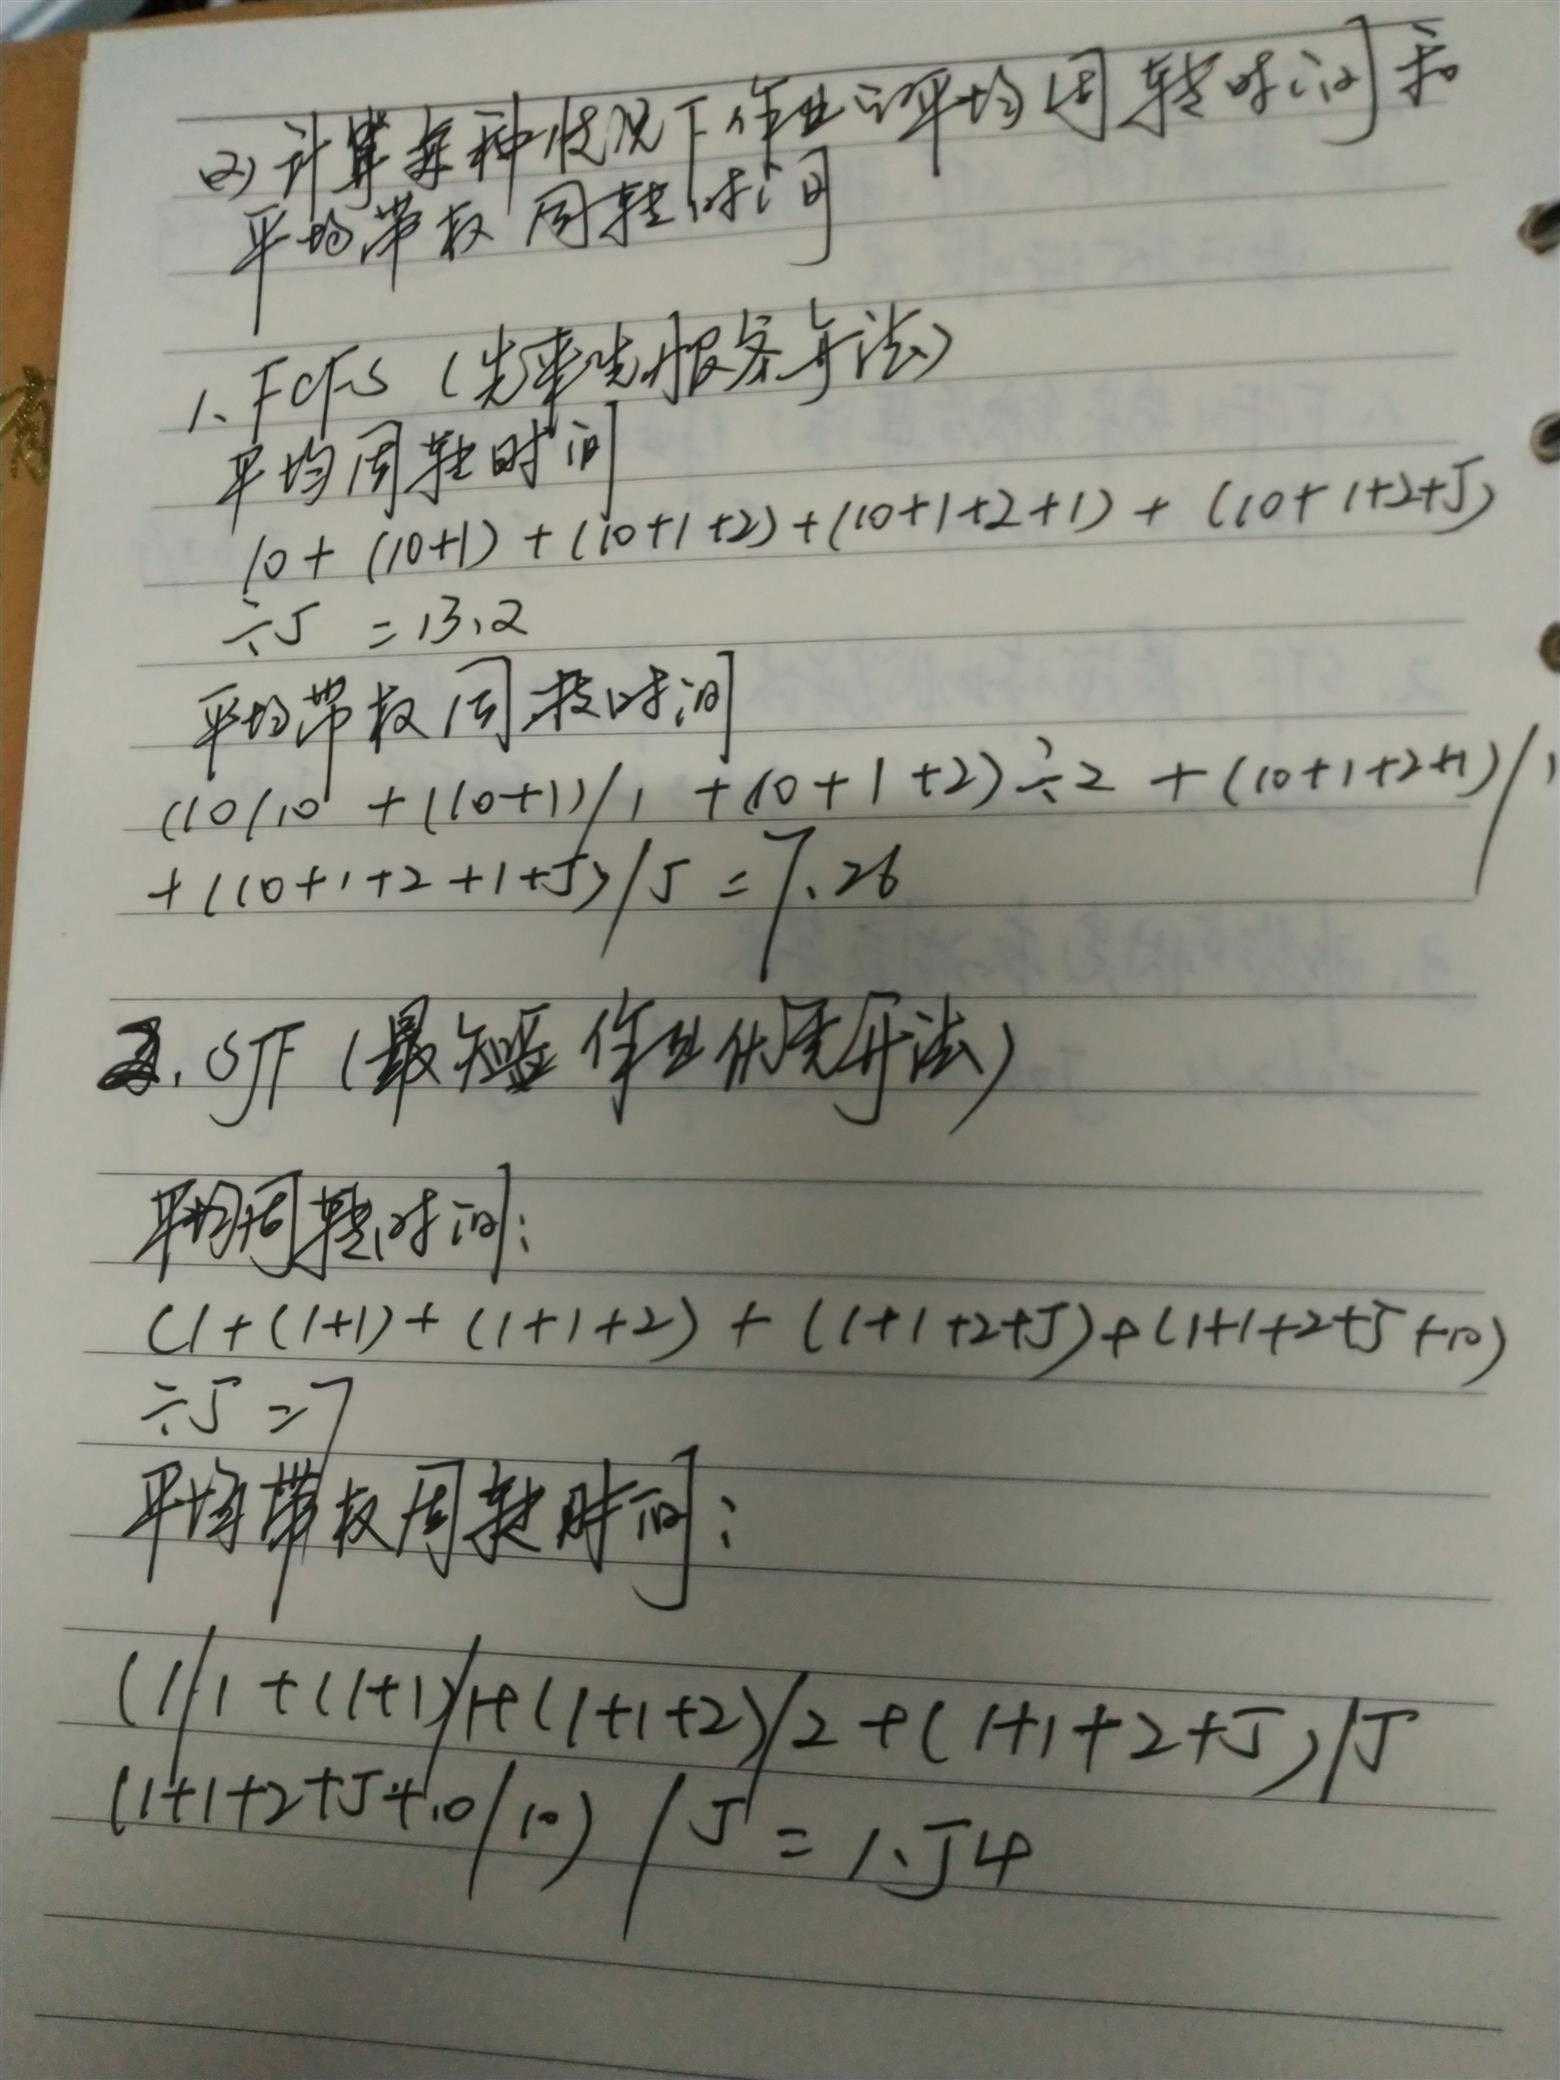 (2) 计算每种情况下作业的平均周转时间和
平均带权周转时间
1、FCFS (先来先服务算法)
平均周转时间
10 + (10+1) + (10+1+2) + (10+1+2+1) + (10+1+2+5)
÷5 = 13.2
平均带权周转时间
(10/10 + (10+1)/1 + (10+1+2)÷2 + (10+1+2+1)/1
+ (10+1+2+1+5)/5 = 7.26
2. SJF (最短作业优先算法)
平均周转时间:
(1+(1+1)+(1+1+2) + (1+1+2+5)+(1+1+2+5+10)
÷5 = 7
平均带权周转时间:
(1/1+(1+1)/1+(1+1+2)/2+(1+1+2+5)/5
(1+1+2+5+10/10) /5 = 1.54